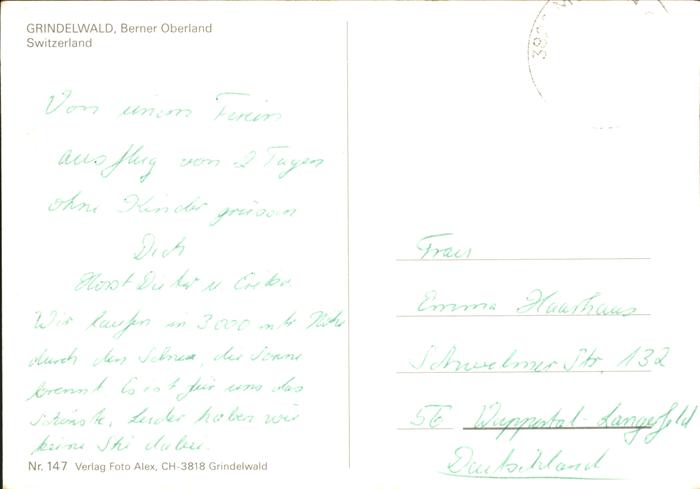 GRINDELWALD, Berner Oberland
Switzerland
Von einem Ferien
ausflug von 2 Tagen
ohne Kinder grüssen
Dich
Horst Dieter u
Wir laufen in 3000 mtr Höhe
durch den Schnee, die Sonne
brennt. Es ist für uns das
Schönste. Leider haben wir
keine Ski dabei.
Nr. 147 Verlag Foto Alex, CH-3818 Grindelwald
Frau
Emma Haarhaus
Schwelmer Str. 132
56 Wuppertal-Langerfeld
Deutschland